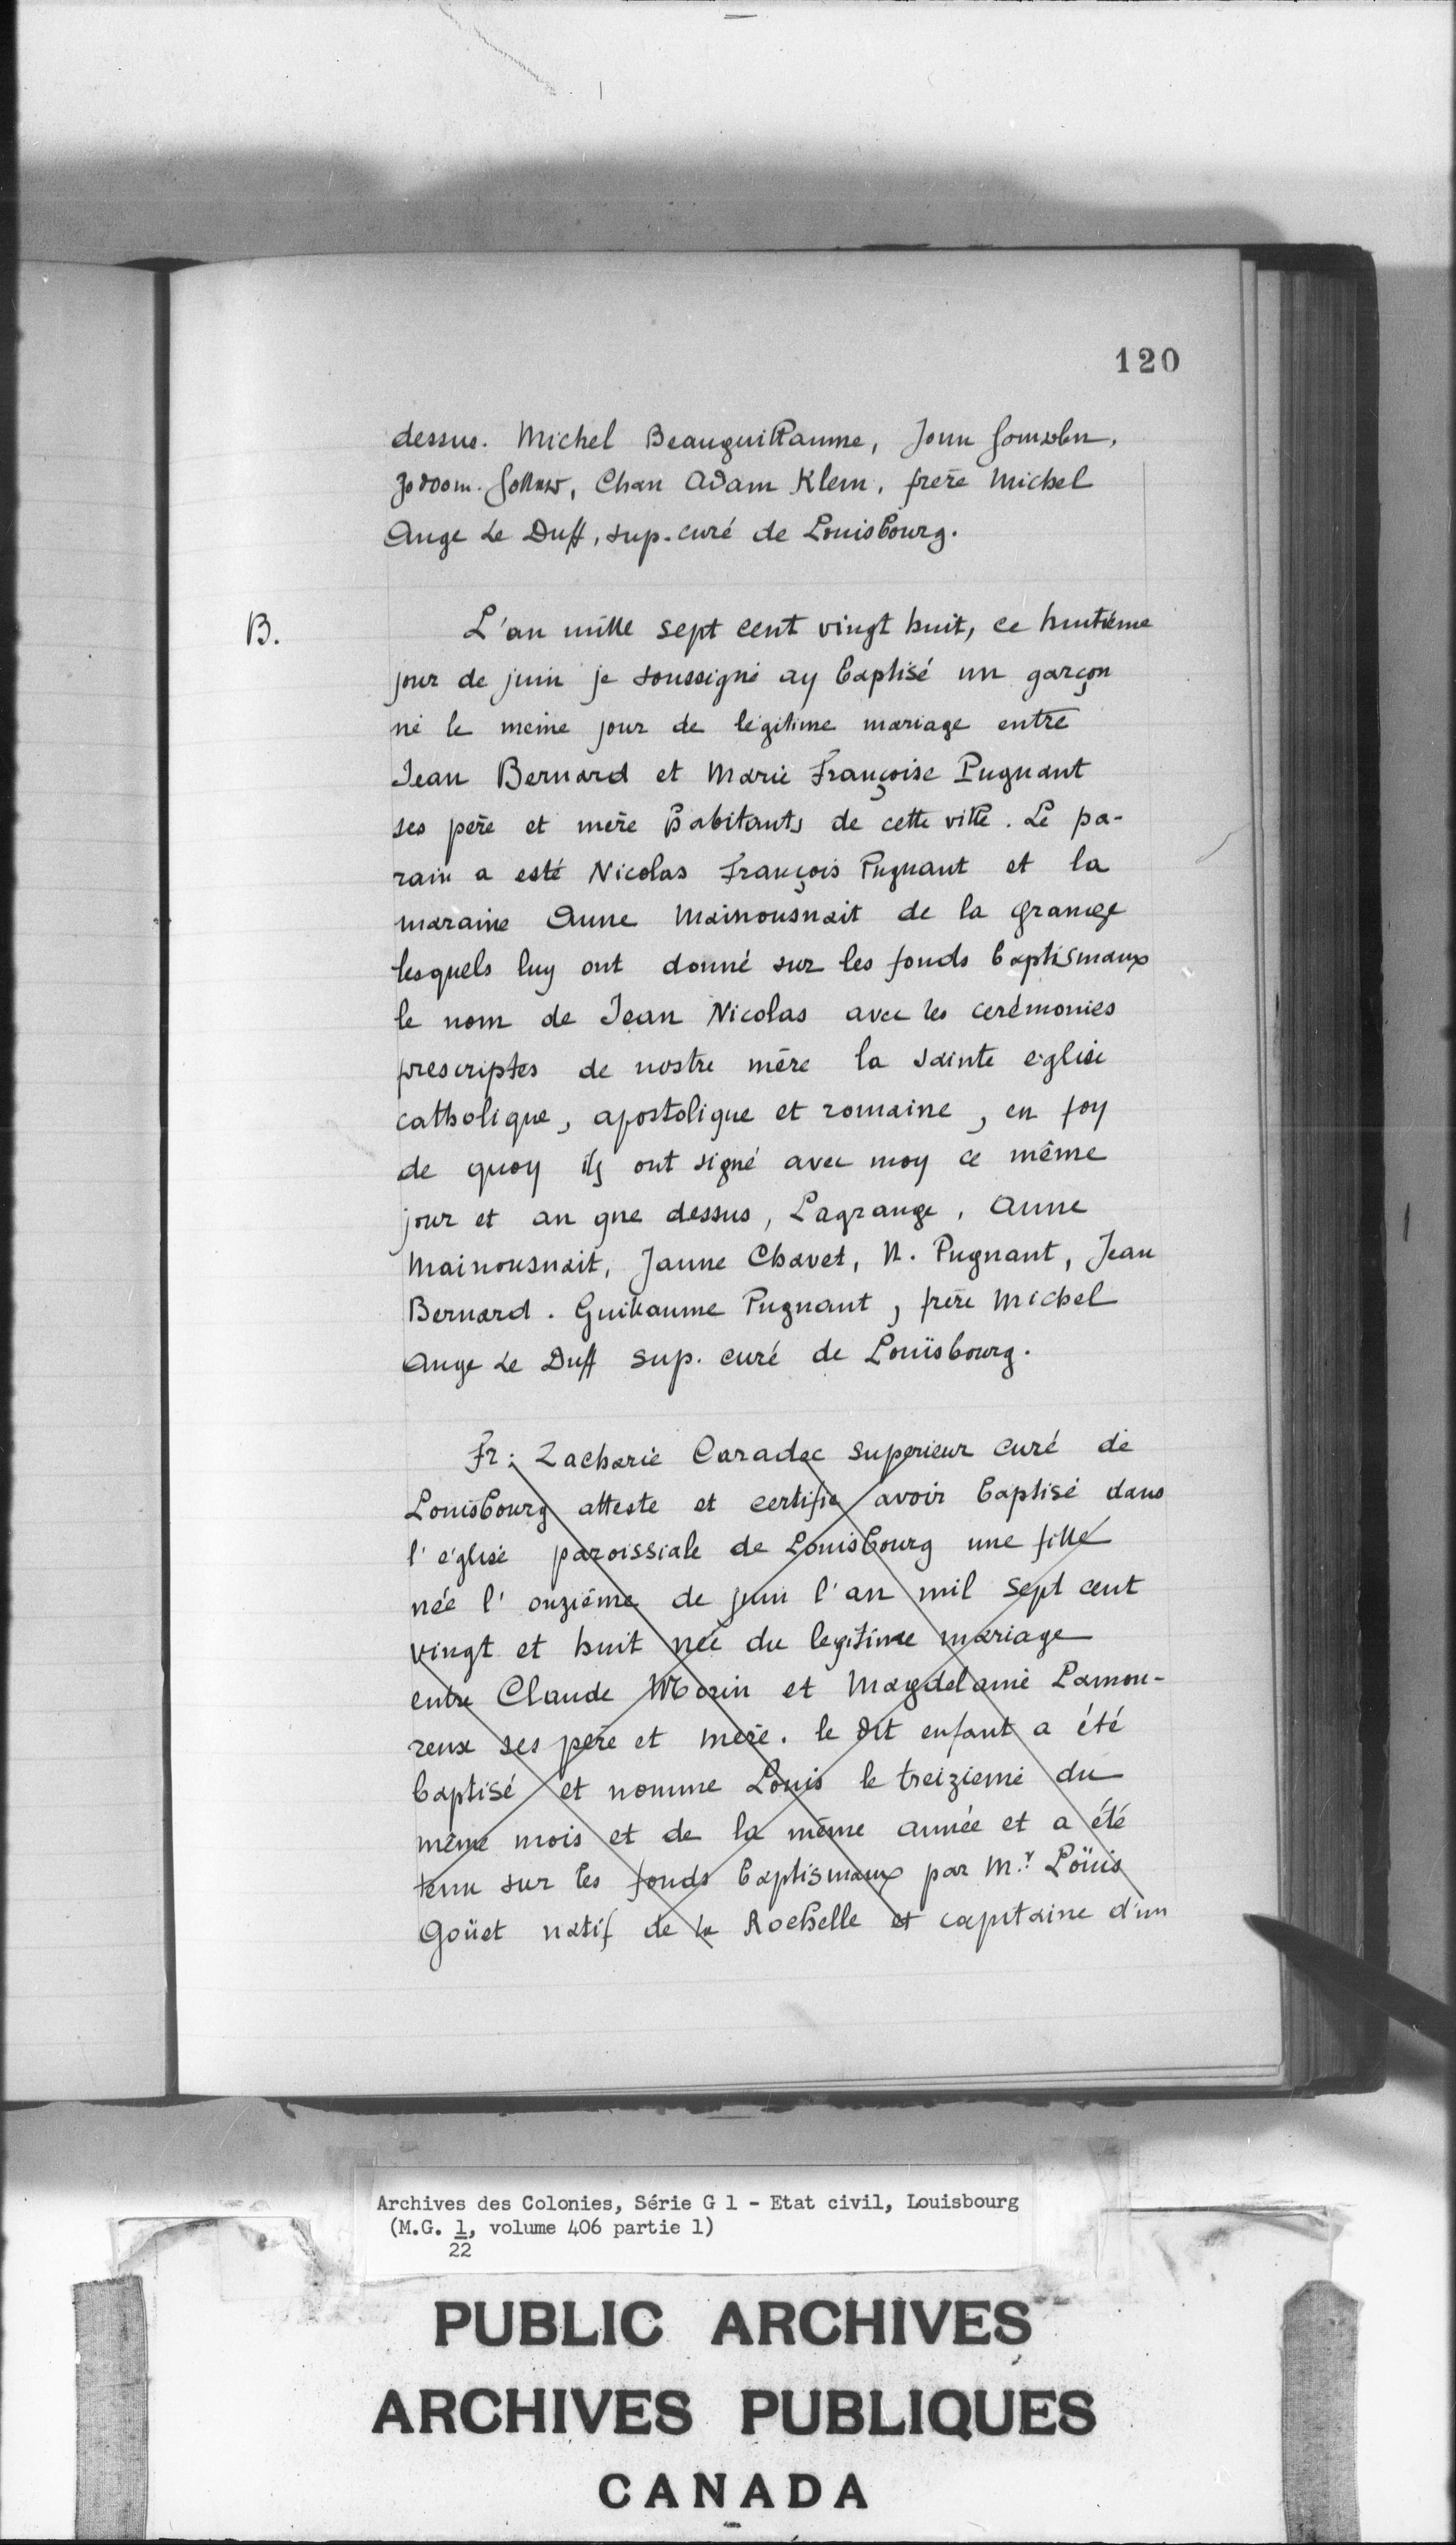 120
dessus. Michel Beauguillaume, Jonn
Chan Adam Klem, frère Michel
Ange Le Duff, sup. curé de Louisbourg.
B.
L'an mille sept cent vingt huit, ce huitième
jour de juin je soussigné ay baptisé un garçon
né le meine jour de légitime mariage entre
Jean Bernard et Marie Françoise Pugnant
ses père et mère habitants de cette ville. Le pa-
rain a esté Nicolas François Pugnant et la
maraine Anne Mainousnait de la Grange
lesquels luy ont donné sur les fonds baptismaux
le nom de Jean Nicolas avec les cerémonies
prescriptes de nostre mère la sainte eglise
catholique, apostolique et romaine, en foy
de quoy ils ont signé avec moy ce même
jour et an que dessus, Lagrange, Anne
Mainousnait, Janne Chavet, N. Pugnant, Jean
Bernard. Guillaume Pugnant, frère Michel
Ange Le Duff sup. curé de Louïsbourg.
Fr: Zacharie Caradec superieur curé de
Louisbourg atteste et certifie avoir baptisé dans
l'église paroissiale de Louisbourg une fille
née l' onzième de juin l'an mil sept cent
vingt et huit née du legitime mariage
entre Claude Morin et Magdelaine Lamou-
reux ses père et mère. le dit enfant a été
baptisé et nommé Louis le treizieme du
même mois et de la même année et a été
tenu sur les fonds baptismaux par M.r Loüis
Goüet natif de la Rochelle et capitaine d'un
Archives des Colonies, Série G 1 - Etat civil, Louisbourg
(M.G. 1, volume 406 partie 1)
22
PUBLIC ARCHIVES
ARCHIVES PUBLIQUES
CANADA